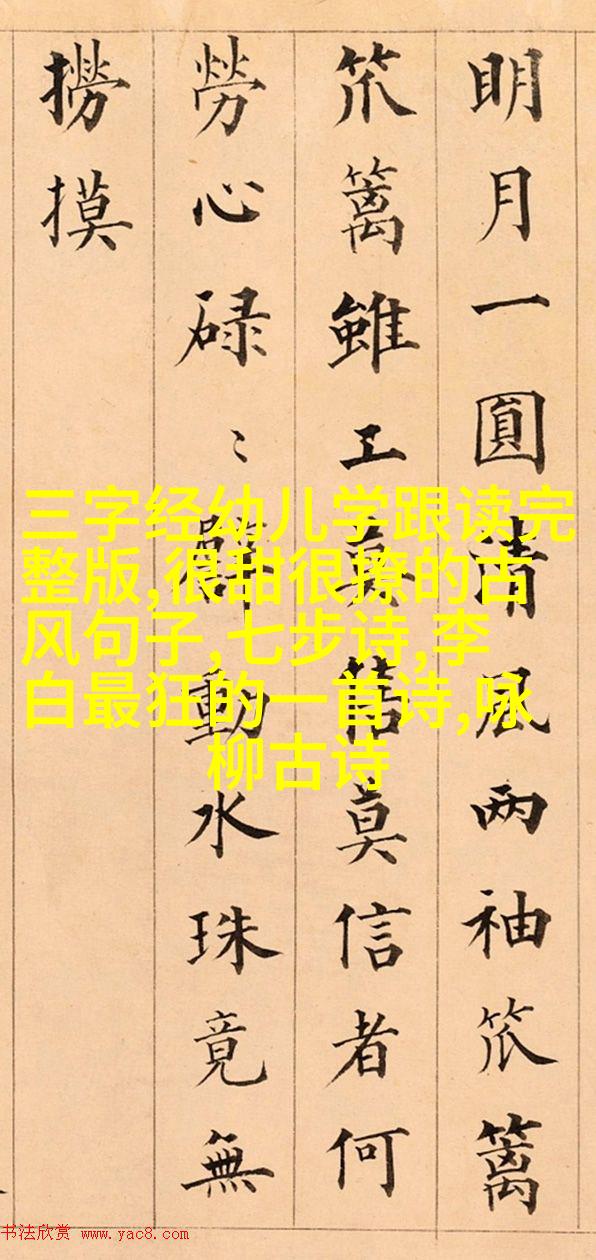 明月一圓清風两袖笊篱
笊篱雖工莫信者何
勞心碌〻動水珠竟無
撈摸
三字经幼儿学跟读完
整版,很甜很撩的古
风句子,七步诗,李
白最狂的一首诗,咏
柳古诗
书法欣赏 www.yac8.com